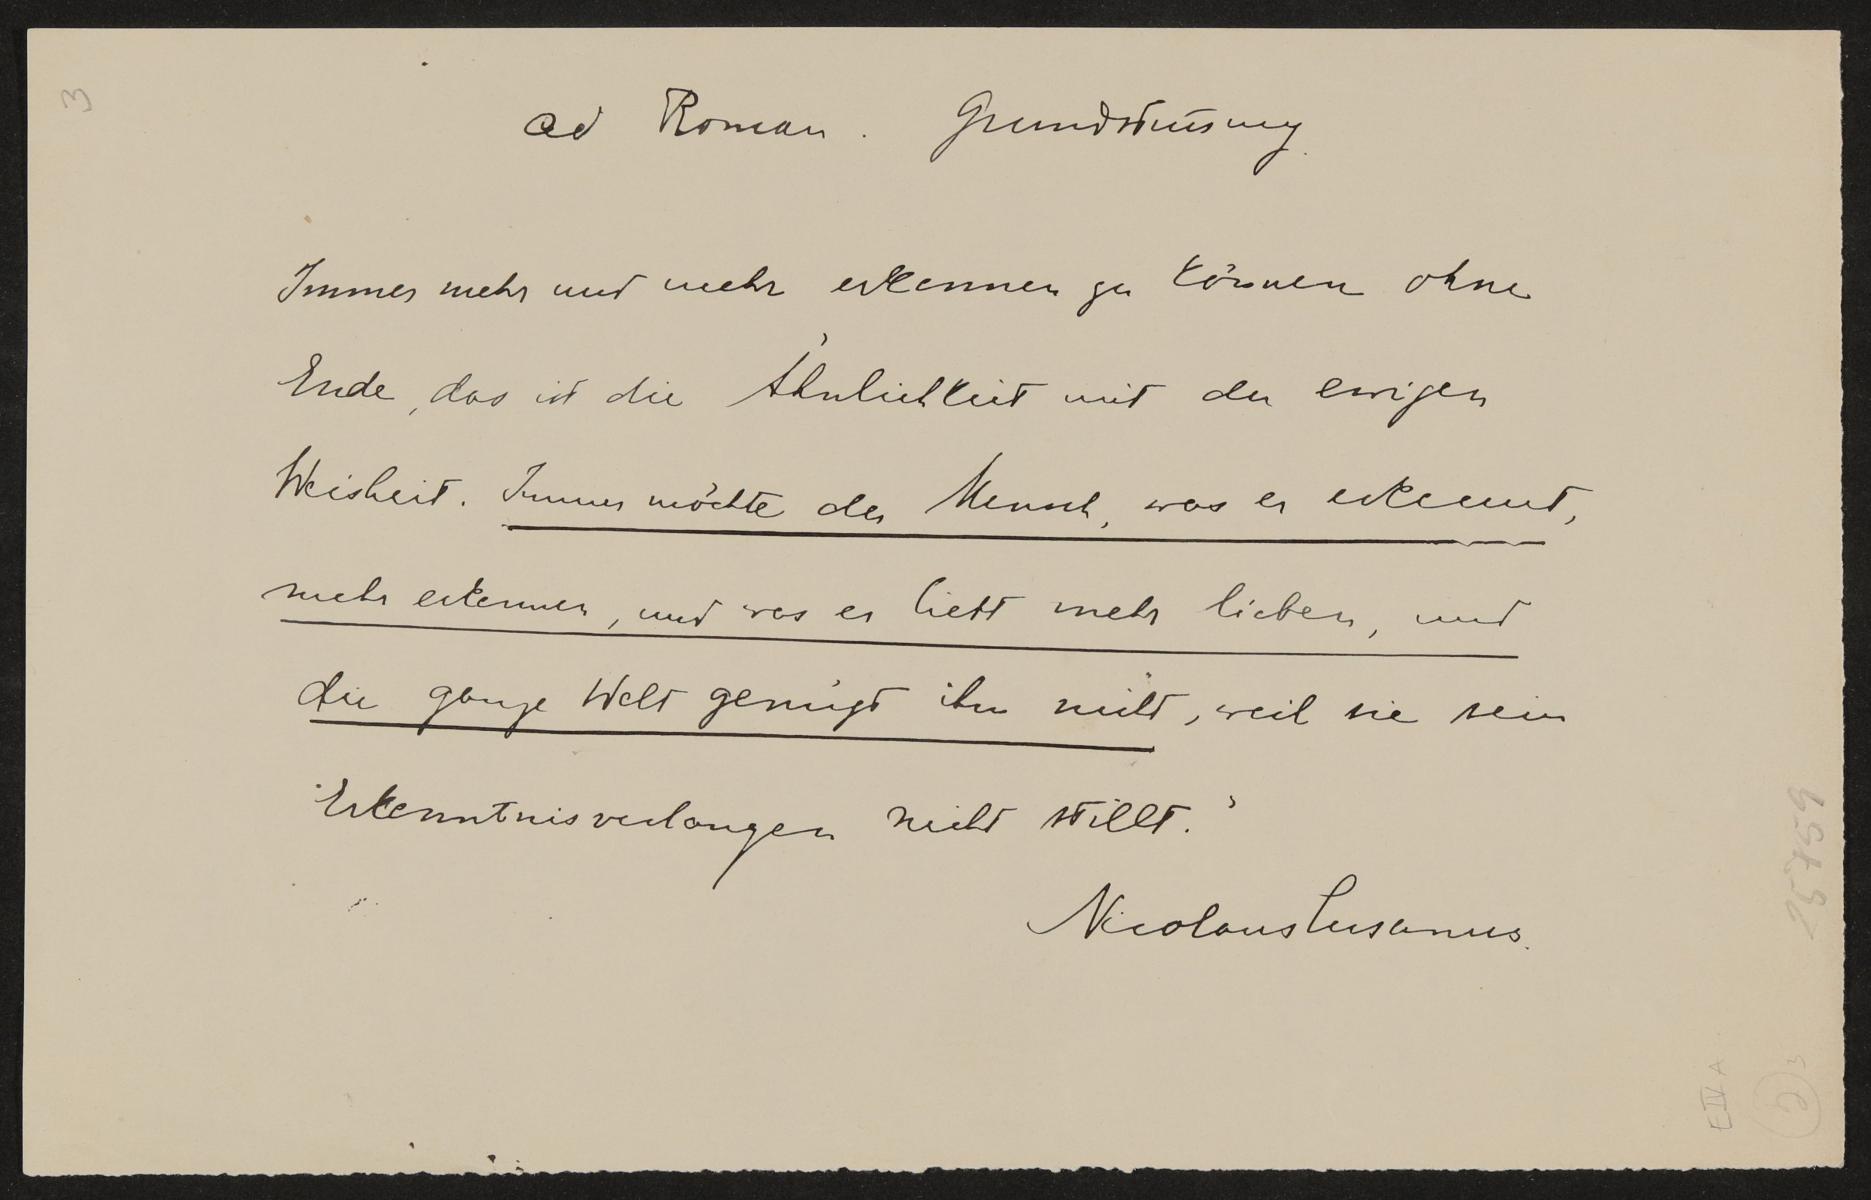 3
ad Roman. Grundstimmung.
Immer mehr und mehr erkennen zu können ohne
Ende, das ist die Ähnlichkeit mit der ewigen
Weisheit. Immer möchte der Mensch, was er erkennt,
mehr erkennen, und was er liebt mehr lieben, und
die ganze Welt genügt ihm nicht, weil sie sein
Erkenntnisverlangen nicht stillt."
Nicolaus Cusanus.
25759
E IV A
2 3